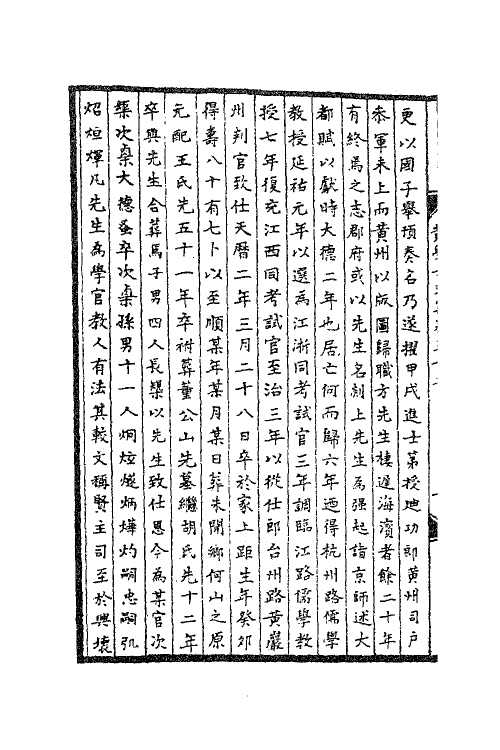 更以國子舉預奏名乃遂擢甲戌進士第授迪功郎黃州司戶
叅軍未上而黃州以版圖歸職方先生棲遲海濱者餘二十年
有終焉之志郡府或以先生名剡上先生為强起詣京師述大
都賦以獻時大德二年也居亡何而歸六年廼得杭州路儒學
教授延祐元年以選為江浙同考試官三年調臨江路儒學教
授七年復充江西同考試官至治三年以從仕郎台州路黃巖
州判官致仕天曆二年三月二十八日卒於家上距生年癸卯
得壽八十有七卜以至順某年某月某日葬朱開鄉何山之原
元配王氏先五十一年卒祔葬董公山先墓繼胡氏先十二年
卒與先生合葬焉子男四人長槼以先生致仕恩今為某官次
槩次槀大德蚤卒次稾孫男十一人炯炷燧炳燁灼嗣忠嗣弘
炤烜煇凡先生為學官教人有法其較文稱賢主司至於興壊